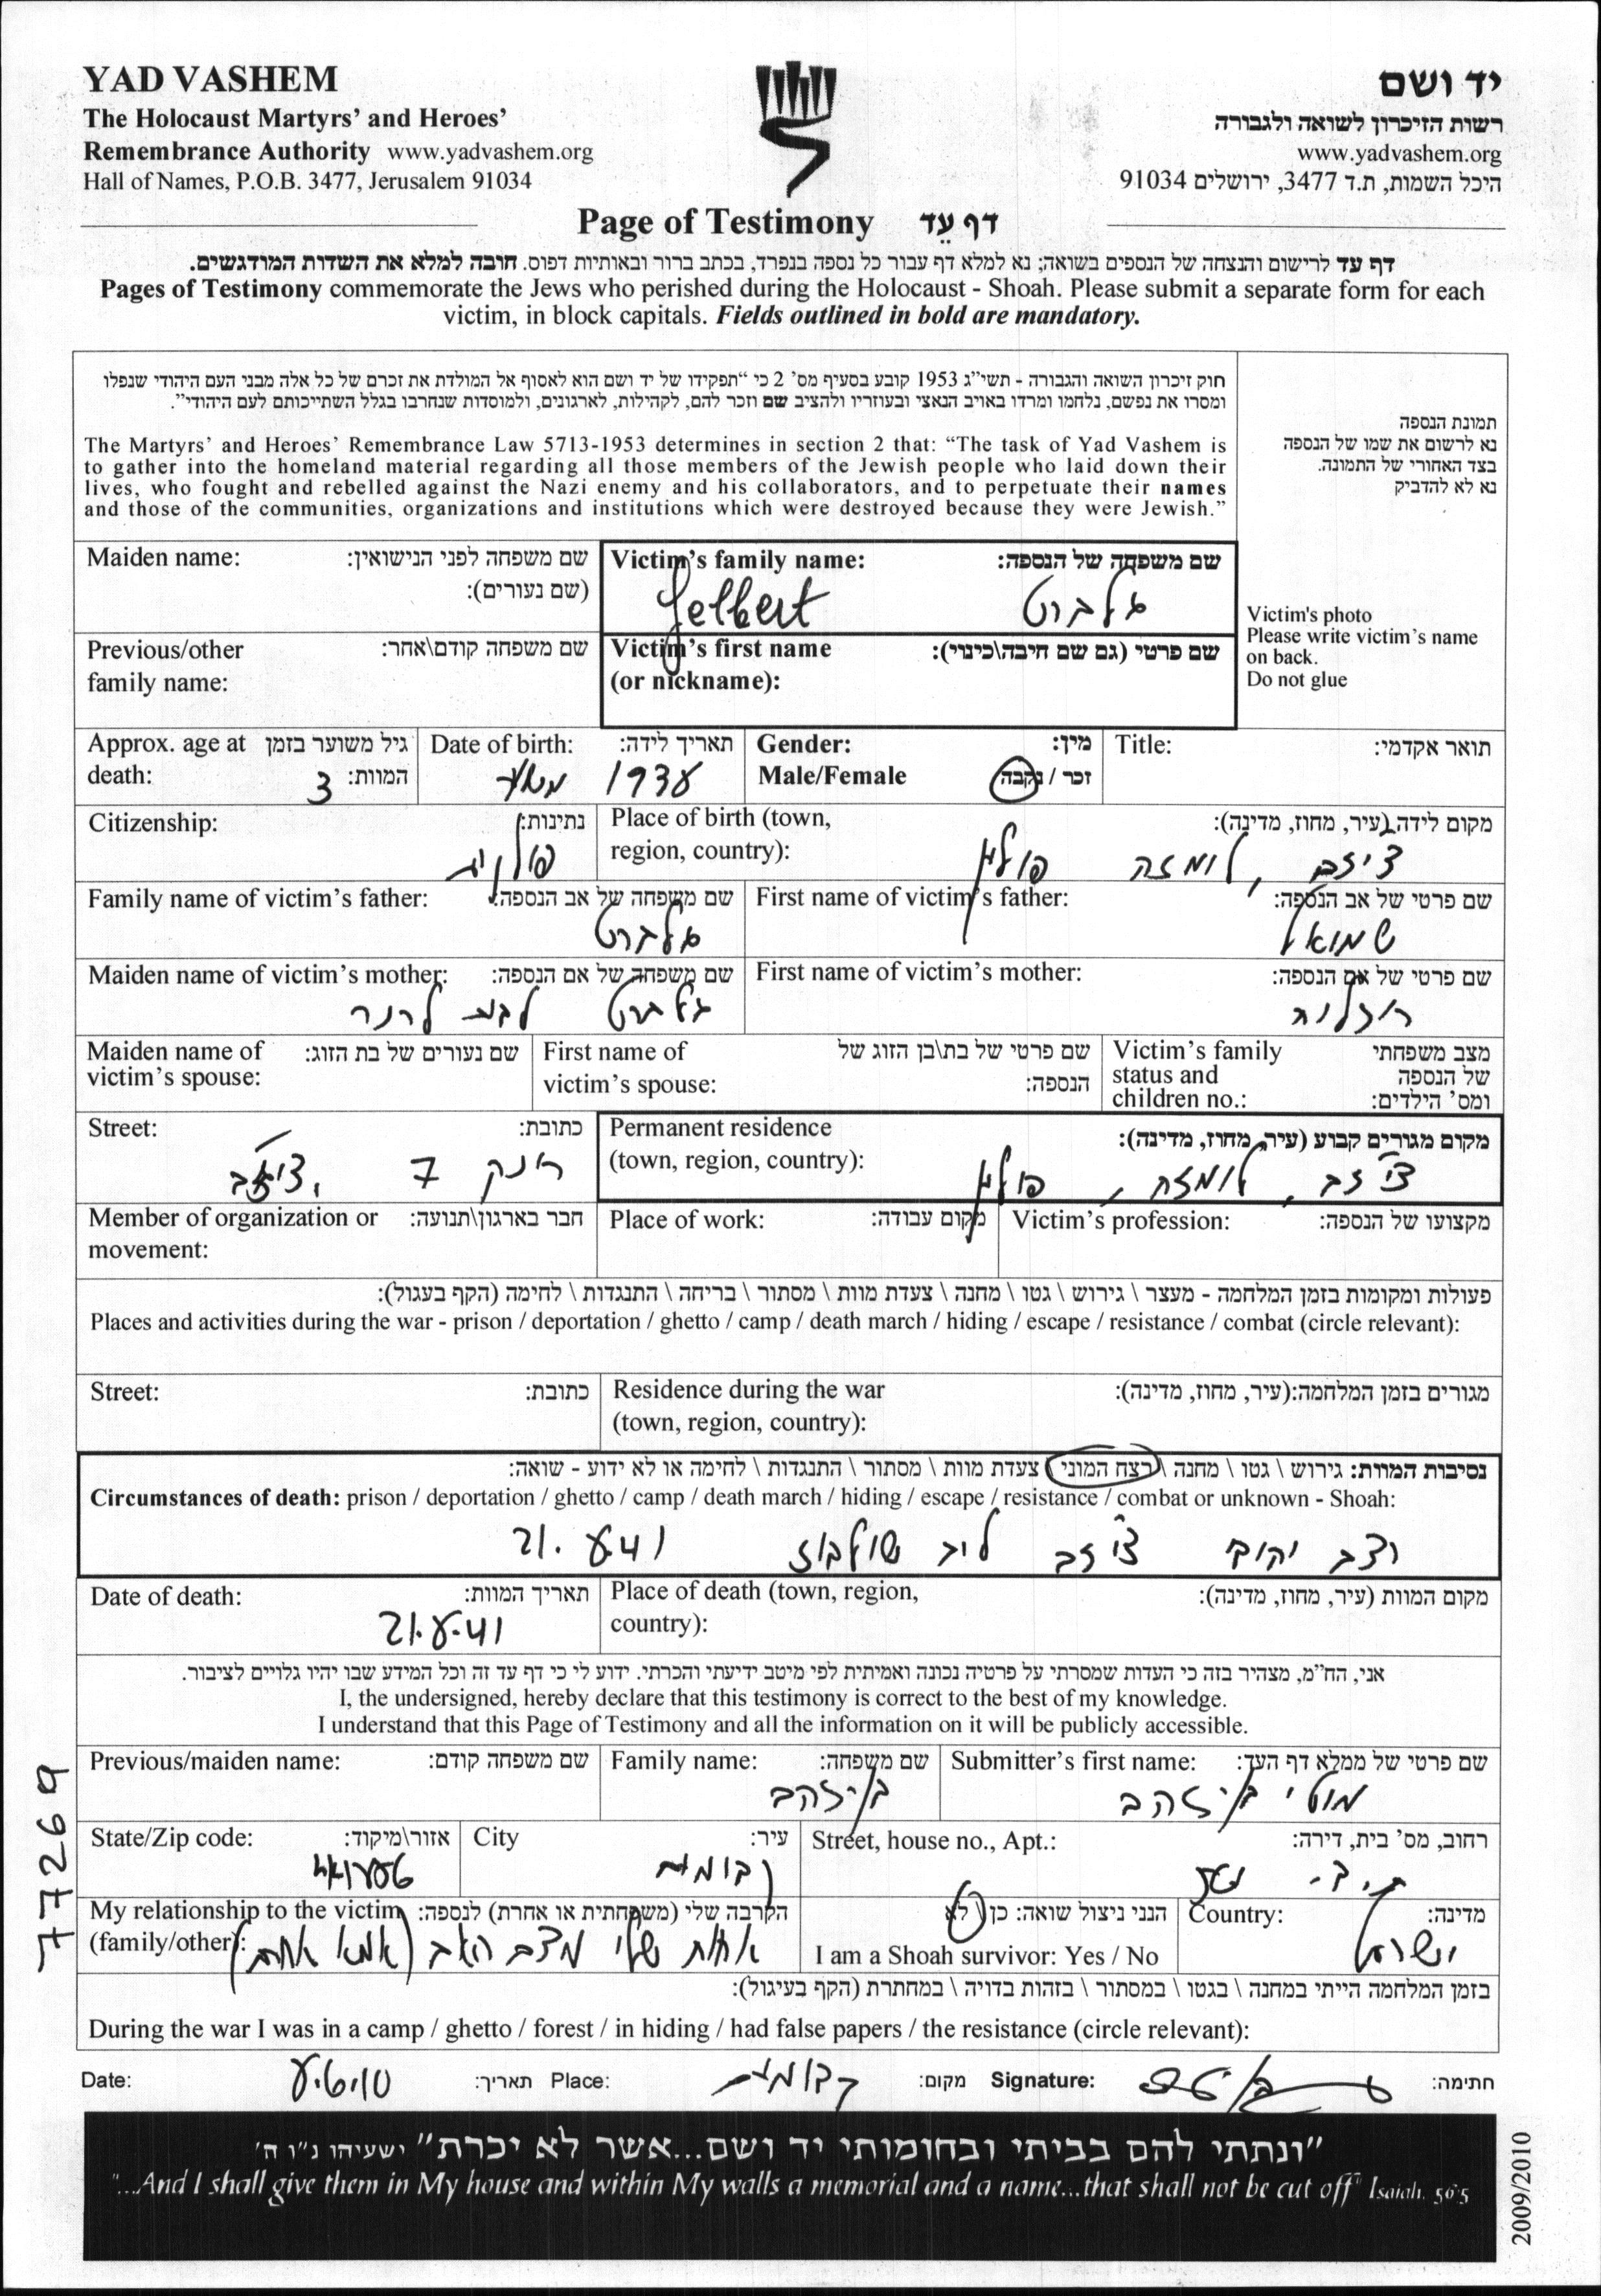 YAD VASHEM
The Holocaust Martyrs' and Heroes'
Remembrance Authority www.yadvashem.org
Hall of Names, P.O.B. 3477, Jerusalem 91034
יד ושם
רשות הזיכרון לשואה ולגבורה
www.yadvashem.org
היכל השמות, ת.ד 3477, ירושלים 91034
Page of Testimony דף עֵד
דף עד לרישום והנצחה של הנספים בשואה; נא למלא דף עבור כל נספה בנפרד, בכתב ברור ובאותיות דפוס. חובה למלא את השדות המודגשים.
Pages of Testimony commemorate the Jews who perished during the Holocaust - Shoah. Please submit a separate form for each
victim, in block capitals. Fields outlined in bold are mandatory.
חוק זיכרון השואה והגבורה - תשי"ג 1953 קובע בסעיף מס' 2 כי "תפקידו של יד ושם הוא לאסוף אל המולדת את זכרם של כל אלה מבני העם היהודי שנפלו
ומסרו את נפשם, נלחמו ומרדו באויב הנאצי ובעוזריו ולהציב שם וזכר להם, לקהילות, לארגונים, ולמוסדות שנחרבו בגלל השתייכותם לעם היהודי".
The Martyrs' and Heroes' Remembrance Law 5713-1953 determines in section 2 that: "The task of Yad Vashem is
to gather into the homeland material regarding all those members of the Jewish people who laid down their
lives, who fought and rebelled against the Nazi enemy and his collaborators, and to perpetuate their names
and those of the communities, organizations and institutions which were destroyed because they were Jewish."
תמונת הנספה
נא לרשום את שמו של הנספה
בצד האחורי של התמונה.
נא לא להדביק
Victim's photo
Please write victim's name
on back.
Do not glue
Maiden name: שם משפחה לפני הנישואין:
(שם נעורים):
Victim's family name: שם משפחה של הנספה:
Gelbert גלברט
Previous/other שם משפחה קודם\אחר:
family name:
Victim's first name שם פרטי (גם שם חיבה\כינוי):
(or nickname):
Approx. age at גיל משוער בזמן
death: המוות: 3
Date of birth: תאריך לידה:
1938
Gender: מין:
Male/Female זכר / נקבה
Title: תואר אקדמי:
Citizenship: נתינות:
פולנית
Place of birth (town, מקום לידה (עיר, מחוז, מדינה):
region, country):
ציזב, לומזה פולין
Family name of victim's father: שם משפחה של אב הנספה:
גלברט
First name of victim's father: שם פרטי של אב הנספה:
שמואל
Maiden name of victim's mother: שם משפחה של אם הנספה:
גלברט לבית לרנר
First name of victim's mother: שם פרטי של אם הנספה:
Maiden name of שם נעורים של בת הזוג:
victim's spouse:
First name of שם פרטי של בת\בן הזוג של
victim's spouse: הנספה:
Victim's family מצב משפחתי
status and של הנספה
children no.: ומס' הילדים:
Street: כתובת:
רינק 7, ציזב
Permanent residence מקום מגורים קבוע (עיר, מחוז, מדינה):
(town, region, country):
ציזב, לומזה, פולין
Member of organization or חבר בארגון\תנועה:
movement:
Place of work: מקום עבודה:
Victim's profession: מקצועו של הנספה:
פעולות ומקומות בזמן המלחמה - מעצר \ גירוש \ גטו \ מחנה \ צעדת מוות \ מסתור \ בריחה \ התנגדות \ לחימה (הקף בעגול):
Places and activities during the war - prison / deportation / ghetto / camp / death march / hiding / escape / resistance / combat (circle relevant):
Street: כתובת:
Residence during the war מגורים בזמן המלחמה:(עיר, מחוז, מדינה):
(town, region, country):
נסיבות המוות: גירוש \ גטו \ מחנה \ רצח המוני \ צעדת מוות \ מסתור \ התנגדות \ לחימה או לא ידוע - שואה:
Circumstances of death: prison / deportation / ghetto / camp / death march / hiding / escape / resistance / combat or unknown - Shoah:
רצח יהודי ציזב ליד שולבוז 21.8.41
Date of death: תאריך המוות:
21.8.41
Place of death (town, region, מקום המוות (עיר, מחוז, מדינה):
country):
אני, הח"מ, מצהיר בזה כי העדות שמסרתי על פרטיה נכונה ואמיתית לפי מיטב ידיעתי והכרתי. ידוע לי כי דף עד זה וכל המידע שבו יהיו גלויים לציבור.
I, the undersigned, hereby declare that this testimony is correct to the best of my knowledge.
I understand that this Page of Testimony and all the information on it will be publicly accessible.
Previous/maiden name: שם משפחה קודם:
Family name: שם משפחה:
בן יזהב
Submitter's first name: שם פרטי של ממלא דף העד:
מוטי בן יזהב
State/Zip code: אזור\מיקוד:
City עיר:
Street, house no., Apt.: רחוב, מס' בית, דירה:
My relationship to the victim הקרבה שלי (משפחתית או אחרת) לנספה:
(family/other):
אחות שלי מצד האב (אמא אחרת)
הנני ניצול שואה: כן \ לא
I am a Shoah survivor: Yes / No
Country: מדינה:
ישראל
בזמן המלחמה הייתי במחנה \ בגטו \ במסתור \ בזהות בדויה \ במחתרת (הקף בעיגול):
During the war I was in a camp / ghetto / forest / in hiding / had false papers / the resistance (circle relevant):
Date: תאריך: Place: מקום: Signature: חתימה:
"ונתתי להם בביתי ובחומותי יד ושם...אשר לא יכרת" ישעיהו נ"ו ה'
"...And I shall give them in My house and within My walls a memorial and a name...that shall not be cut off" Isaiah. 56:5
2009/2010
77269